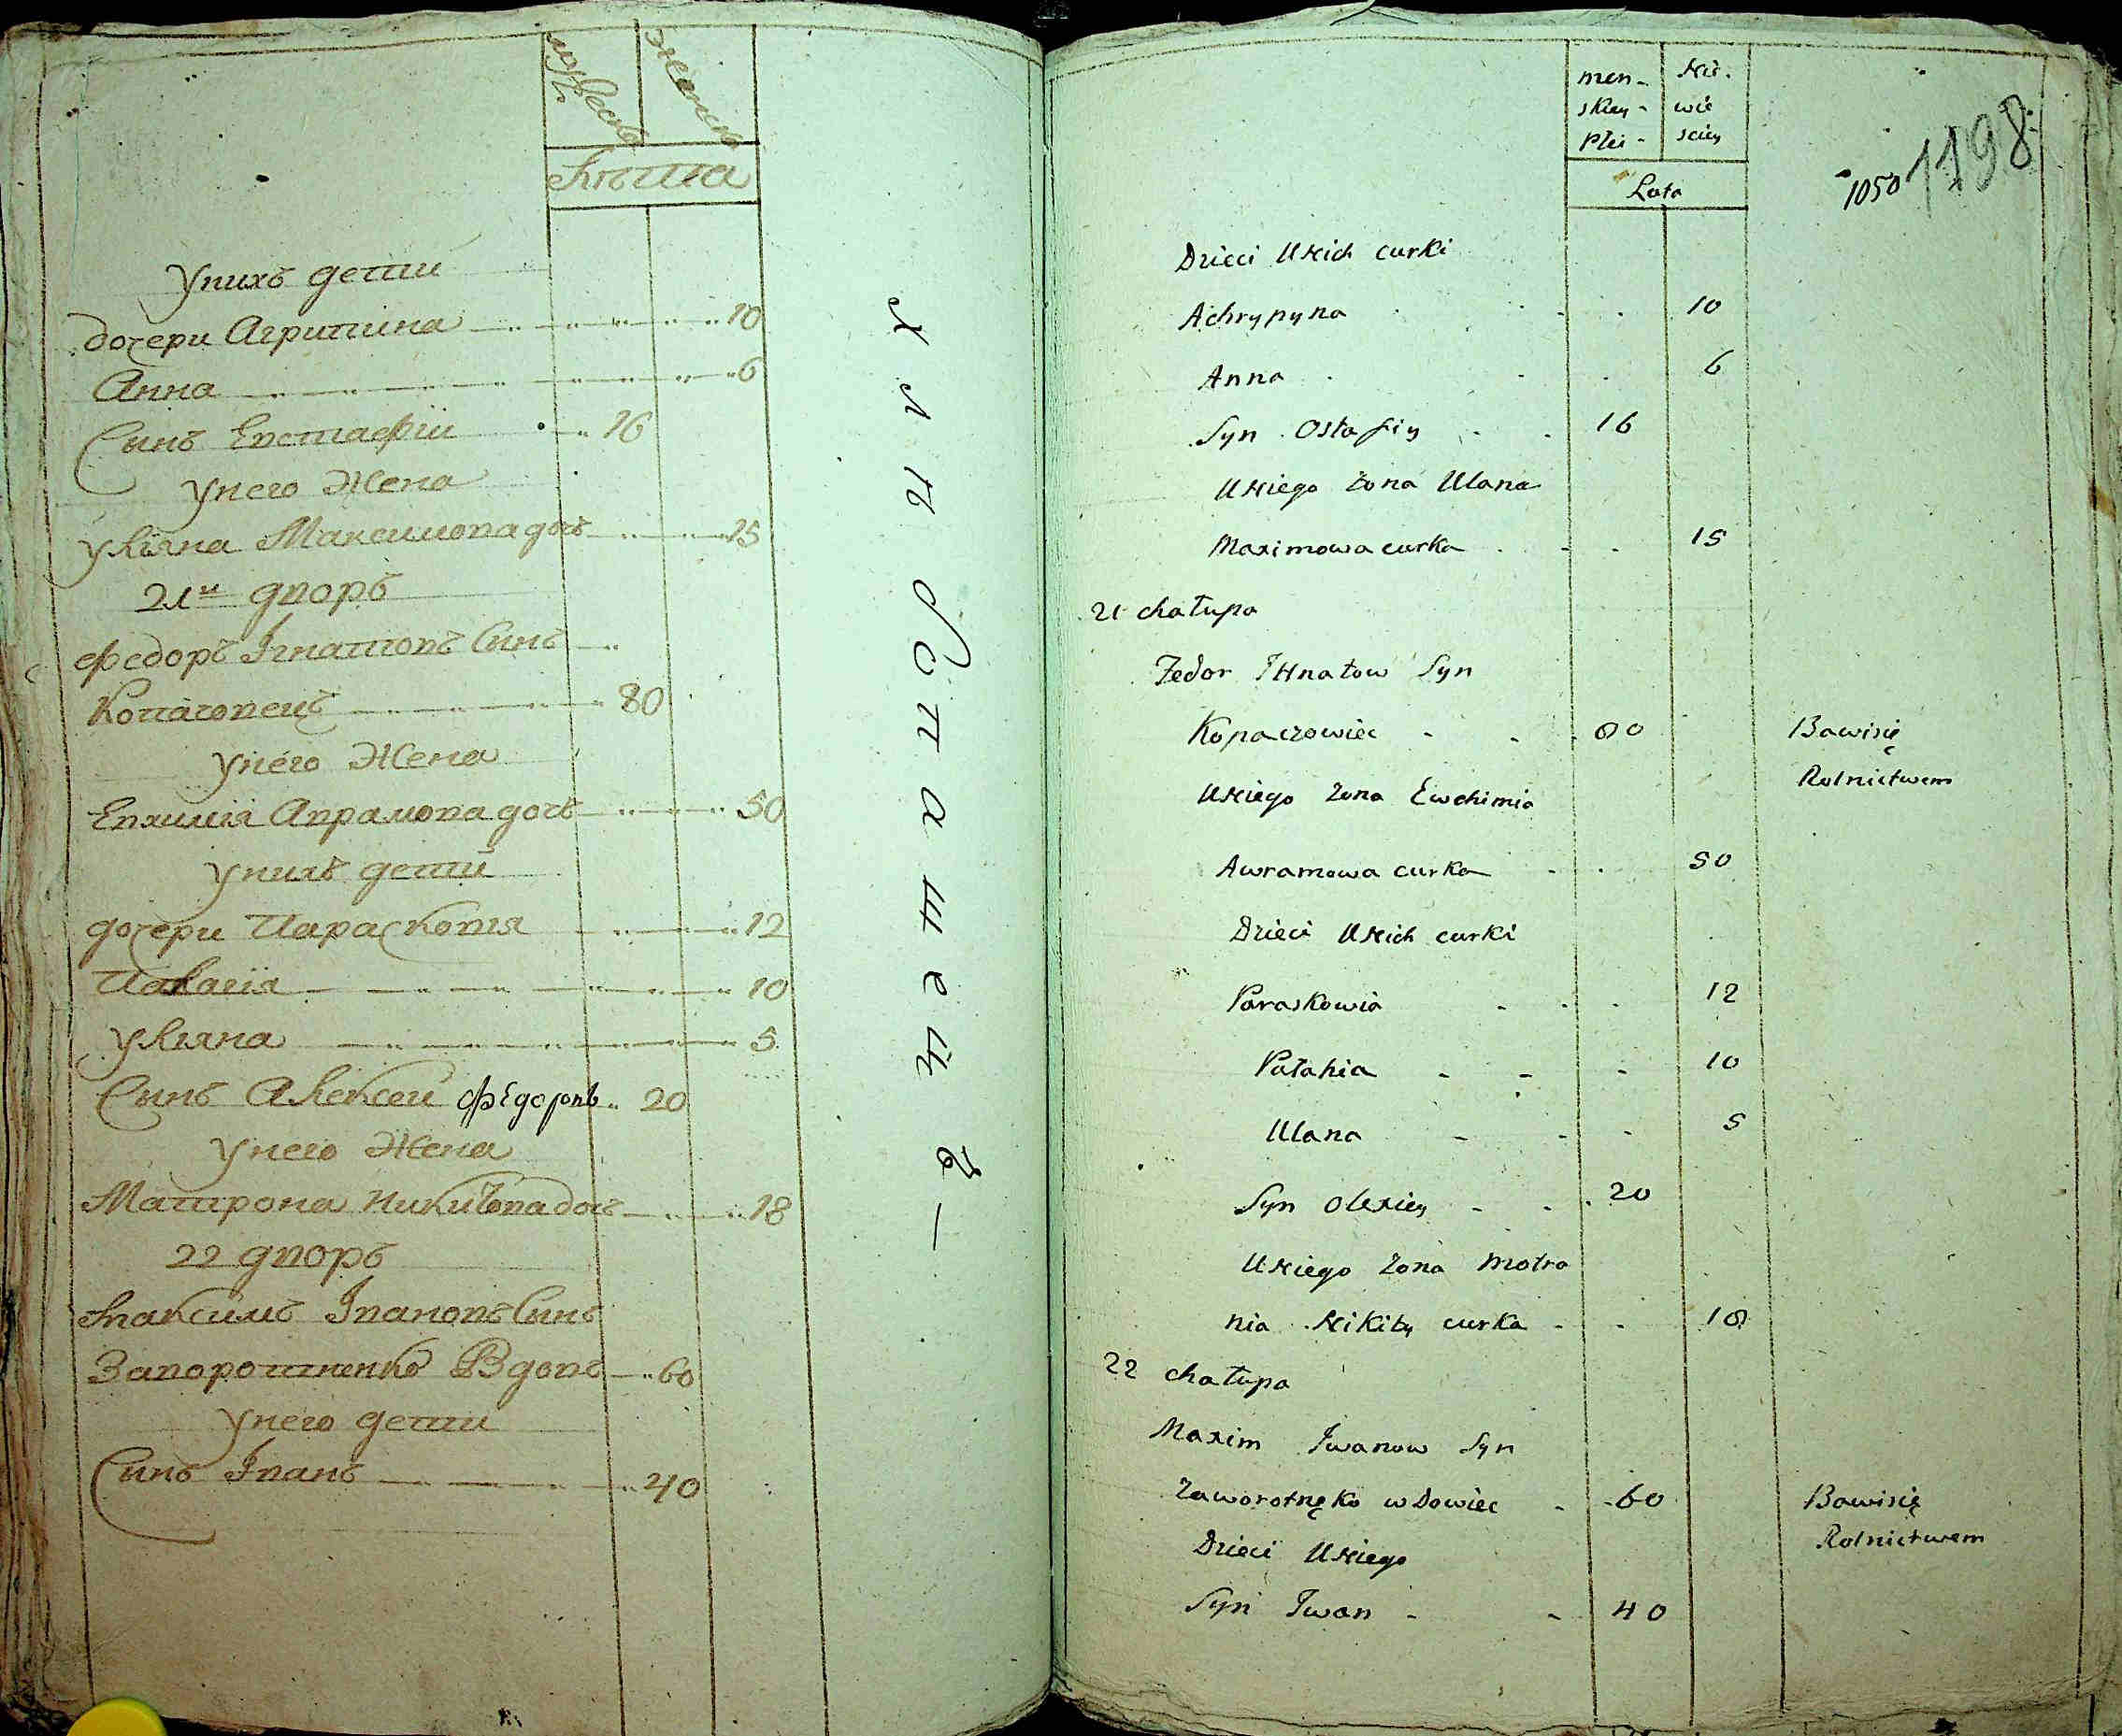 мужеска
женска
Лѣта
У нихъ дети
дочери Агрипина 10
Анна 6
Сынъ Евстафій 16
У него Жена
Уліяна Максимова дочь 15
21й дворъ
Федоръ Ігнатовъ Сынъ
Копачовецъ 80
У него Жена
Евхимія Аврамова дочь 50
У нихъ дети
дочери Парасковія 12
Палагія 10
Уліяна 5
Сынъ Алексей Федоровъ 20
У него Жена
Матрона Никитова дочь 18
22 дворъ
Максимъ Івановъ Сынъ
60
У него дети
Сынъ Іванъ 40
men- Nie-
skiey- wie
Płci- sciey
Lata
1050 1198
Dzieci U Nich curki
Achrypyna 10
Anna 6
Syn Ostafiy 16
U Niego Żona Ulana
Maximowa curka 15
21 chałupa
Fedor IHnatow Syn
Kopaczowiec 80 Bawisię
Rolnictwem
U Niego Żona Ewchimia
Awramowa curka 50
Dzieci U Nich curki
Paraskowia 12
Pałahia 10
Ulana 5
Syn Olexiey 20
U Niego Żona Motro
nia Nikity curka 18
22 chałupa
Maxim Iwanow Syn
Zaworotnęko wdowiec 60 Bawisię
Rolnictwem
Dzieci U Niego
Syn Iwan 40